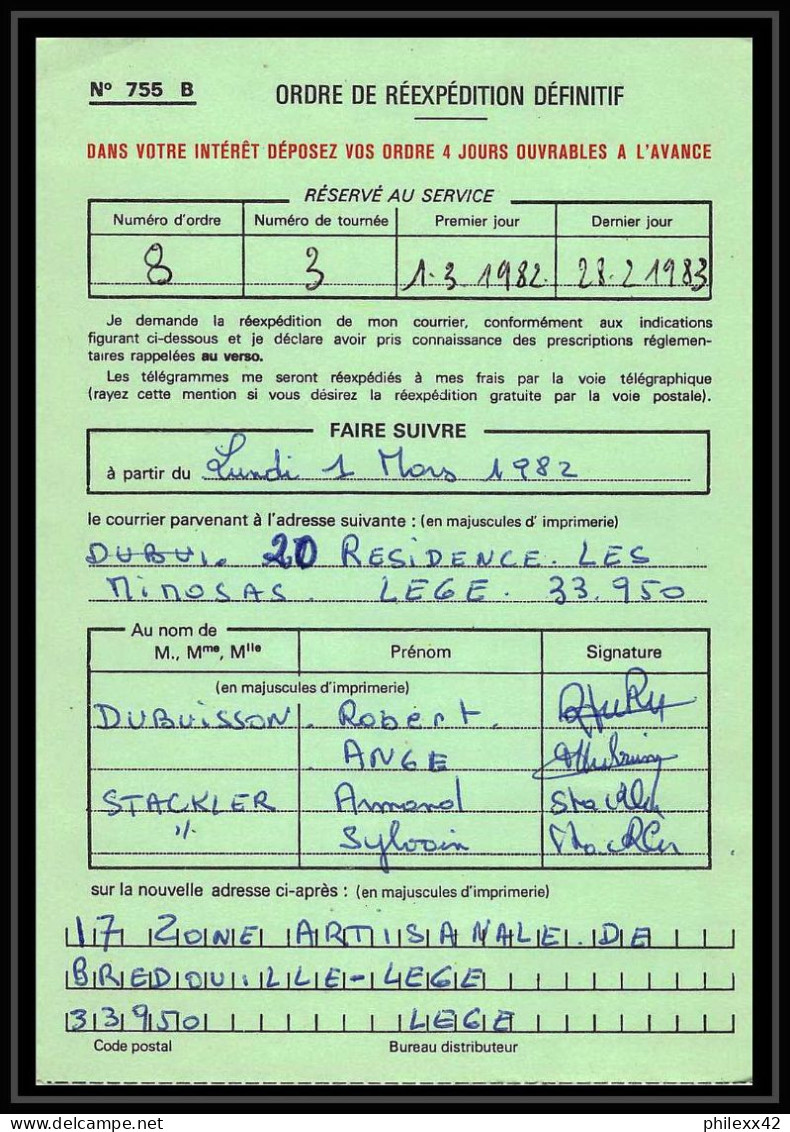 Nº 755 B
ORDRE DE RÉEXPÉDITION DÉFINITIF
DANS VOTRE INTÉRÊT DÉPOSEZ VOS ORDRE 4 JOURS OUVRABLES A L'AVANCE
RÉSERVÉ AU SERVICE
Numéro d'ordre Numéro de tournée Premier jour Dernier jour
8 3 1-3 1982. 28.2 1983
Je demande la réexpédition de mon courrier, conformément aux indications
figurant ci-dessous et je déclare avoir pris connaissance des prescriptions réglemen-
taires rappelées au verso.
Les télégrammes me seront réexpédiés à mes frais par la voie télégraphique
(rayez cette mention si vous désirez la réexpédition gratuite par la voie postale).
FAIRE SUIVRE
à partir du Lundi 1 Mars 1982
le courrier parvenant à l'adresse suivante : (en majuscules d' imprimerie)
DUBUI. 20 RESIDENCE. LES
MIMOSAS. LEGE. 33.950
Au nom de
M., Mme, Mlle Prénom Signature
(en majuscules d'imprimerie)
DUBUISSON. Robert.
ANGE
STACKLER Armand
Sylvain
sur la nouvelle adresse ci-après : (en majuscules d'imprimerie)
17 ZONE ARTISANALE. DE
BREDOUILLE-LEGE
33950 LEGE
Code postal Bureau distributeur
www.delcampe.net philexx42